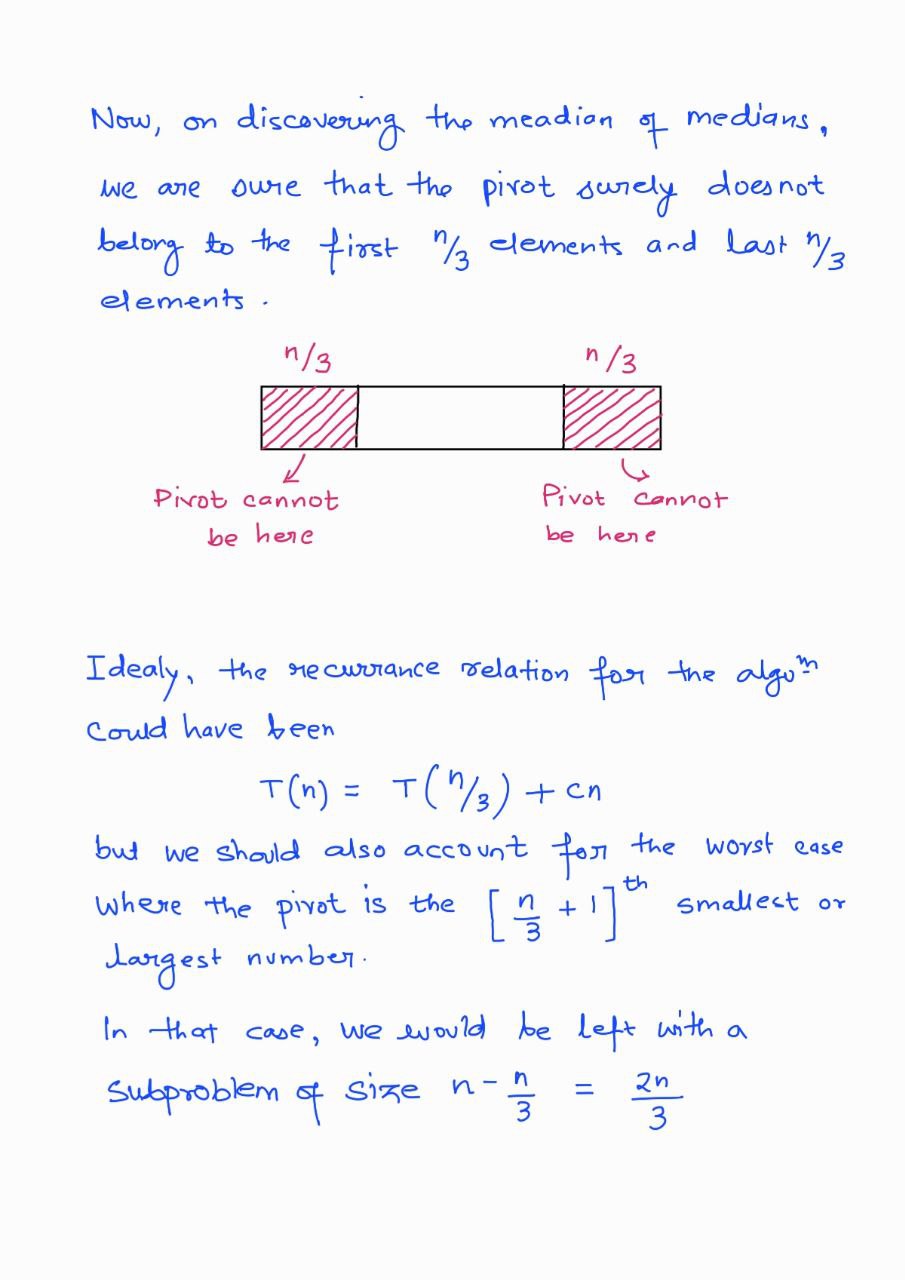 Now, on discovering the meadian of medians,
we are sure that the pivot surely doesnot
belong to the first n/3 elements and last n/3
elements.
n/3 n/3
Pivot cannot Pivot cannot
be here be here
Idealy, the recurrance relation for the algoᵐ
could have been
T(n) = T(n/3) + cn
but we should also account for the worst case
where the pivot is the [n/3 + 1]ᵗʰ smallest or
largest number.
In that case, we would be left with a
subproblem of size n - n/3 = 2n/3